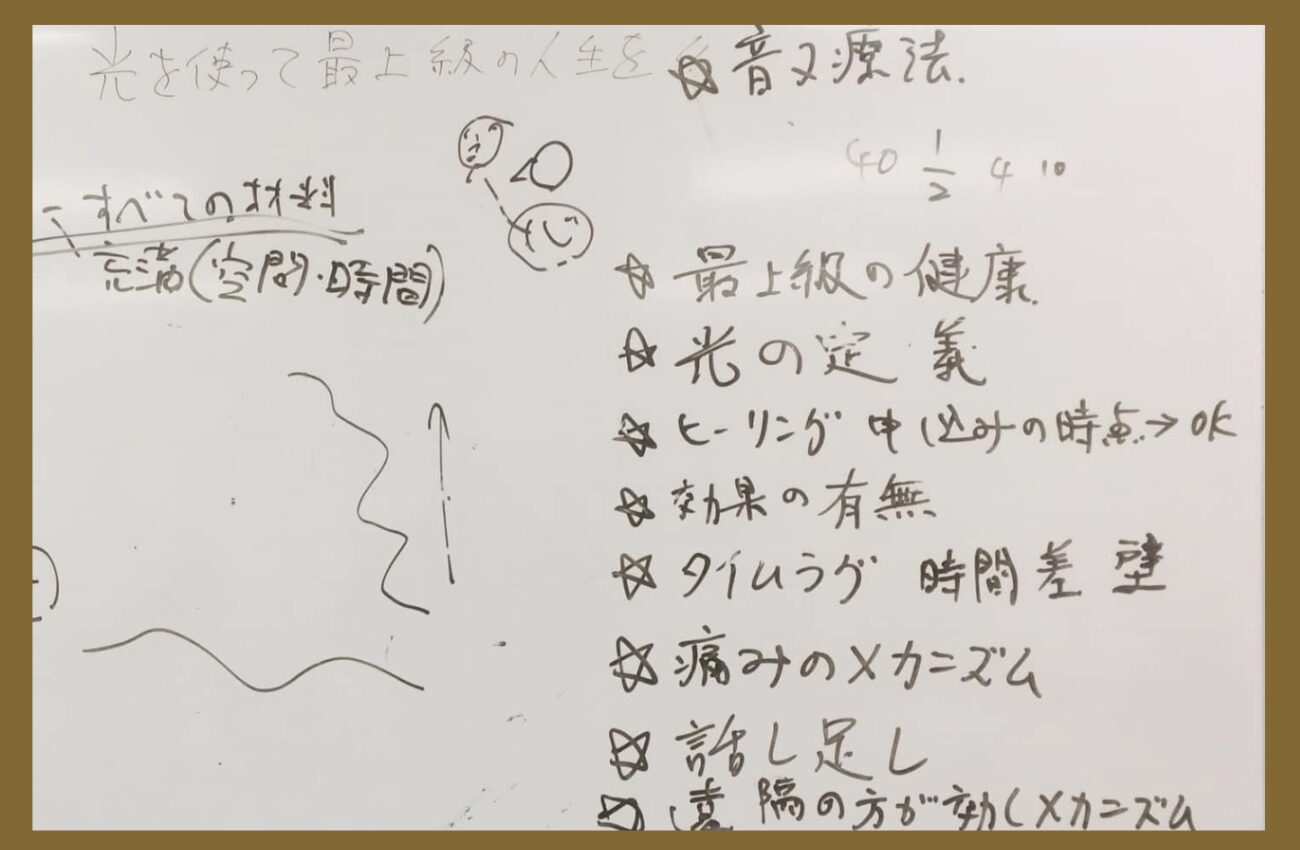 光を使って最上級の人生を
☆音叉療法.
40 1/2 4 10
すべての材料
充満(空間・時間)
心
☆最上級の健康.
☆光の定義
☆ヒーリング申し込みの時点→OK
☆効果の有無
☆タイムラグ 時間差
☆痛みのメカニズム
☆話し足し
☆遠隔の方が効くメカニズム